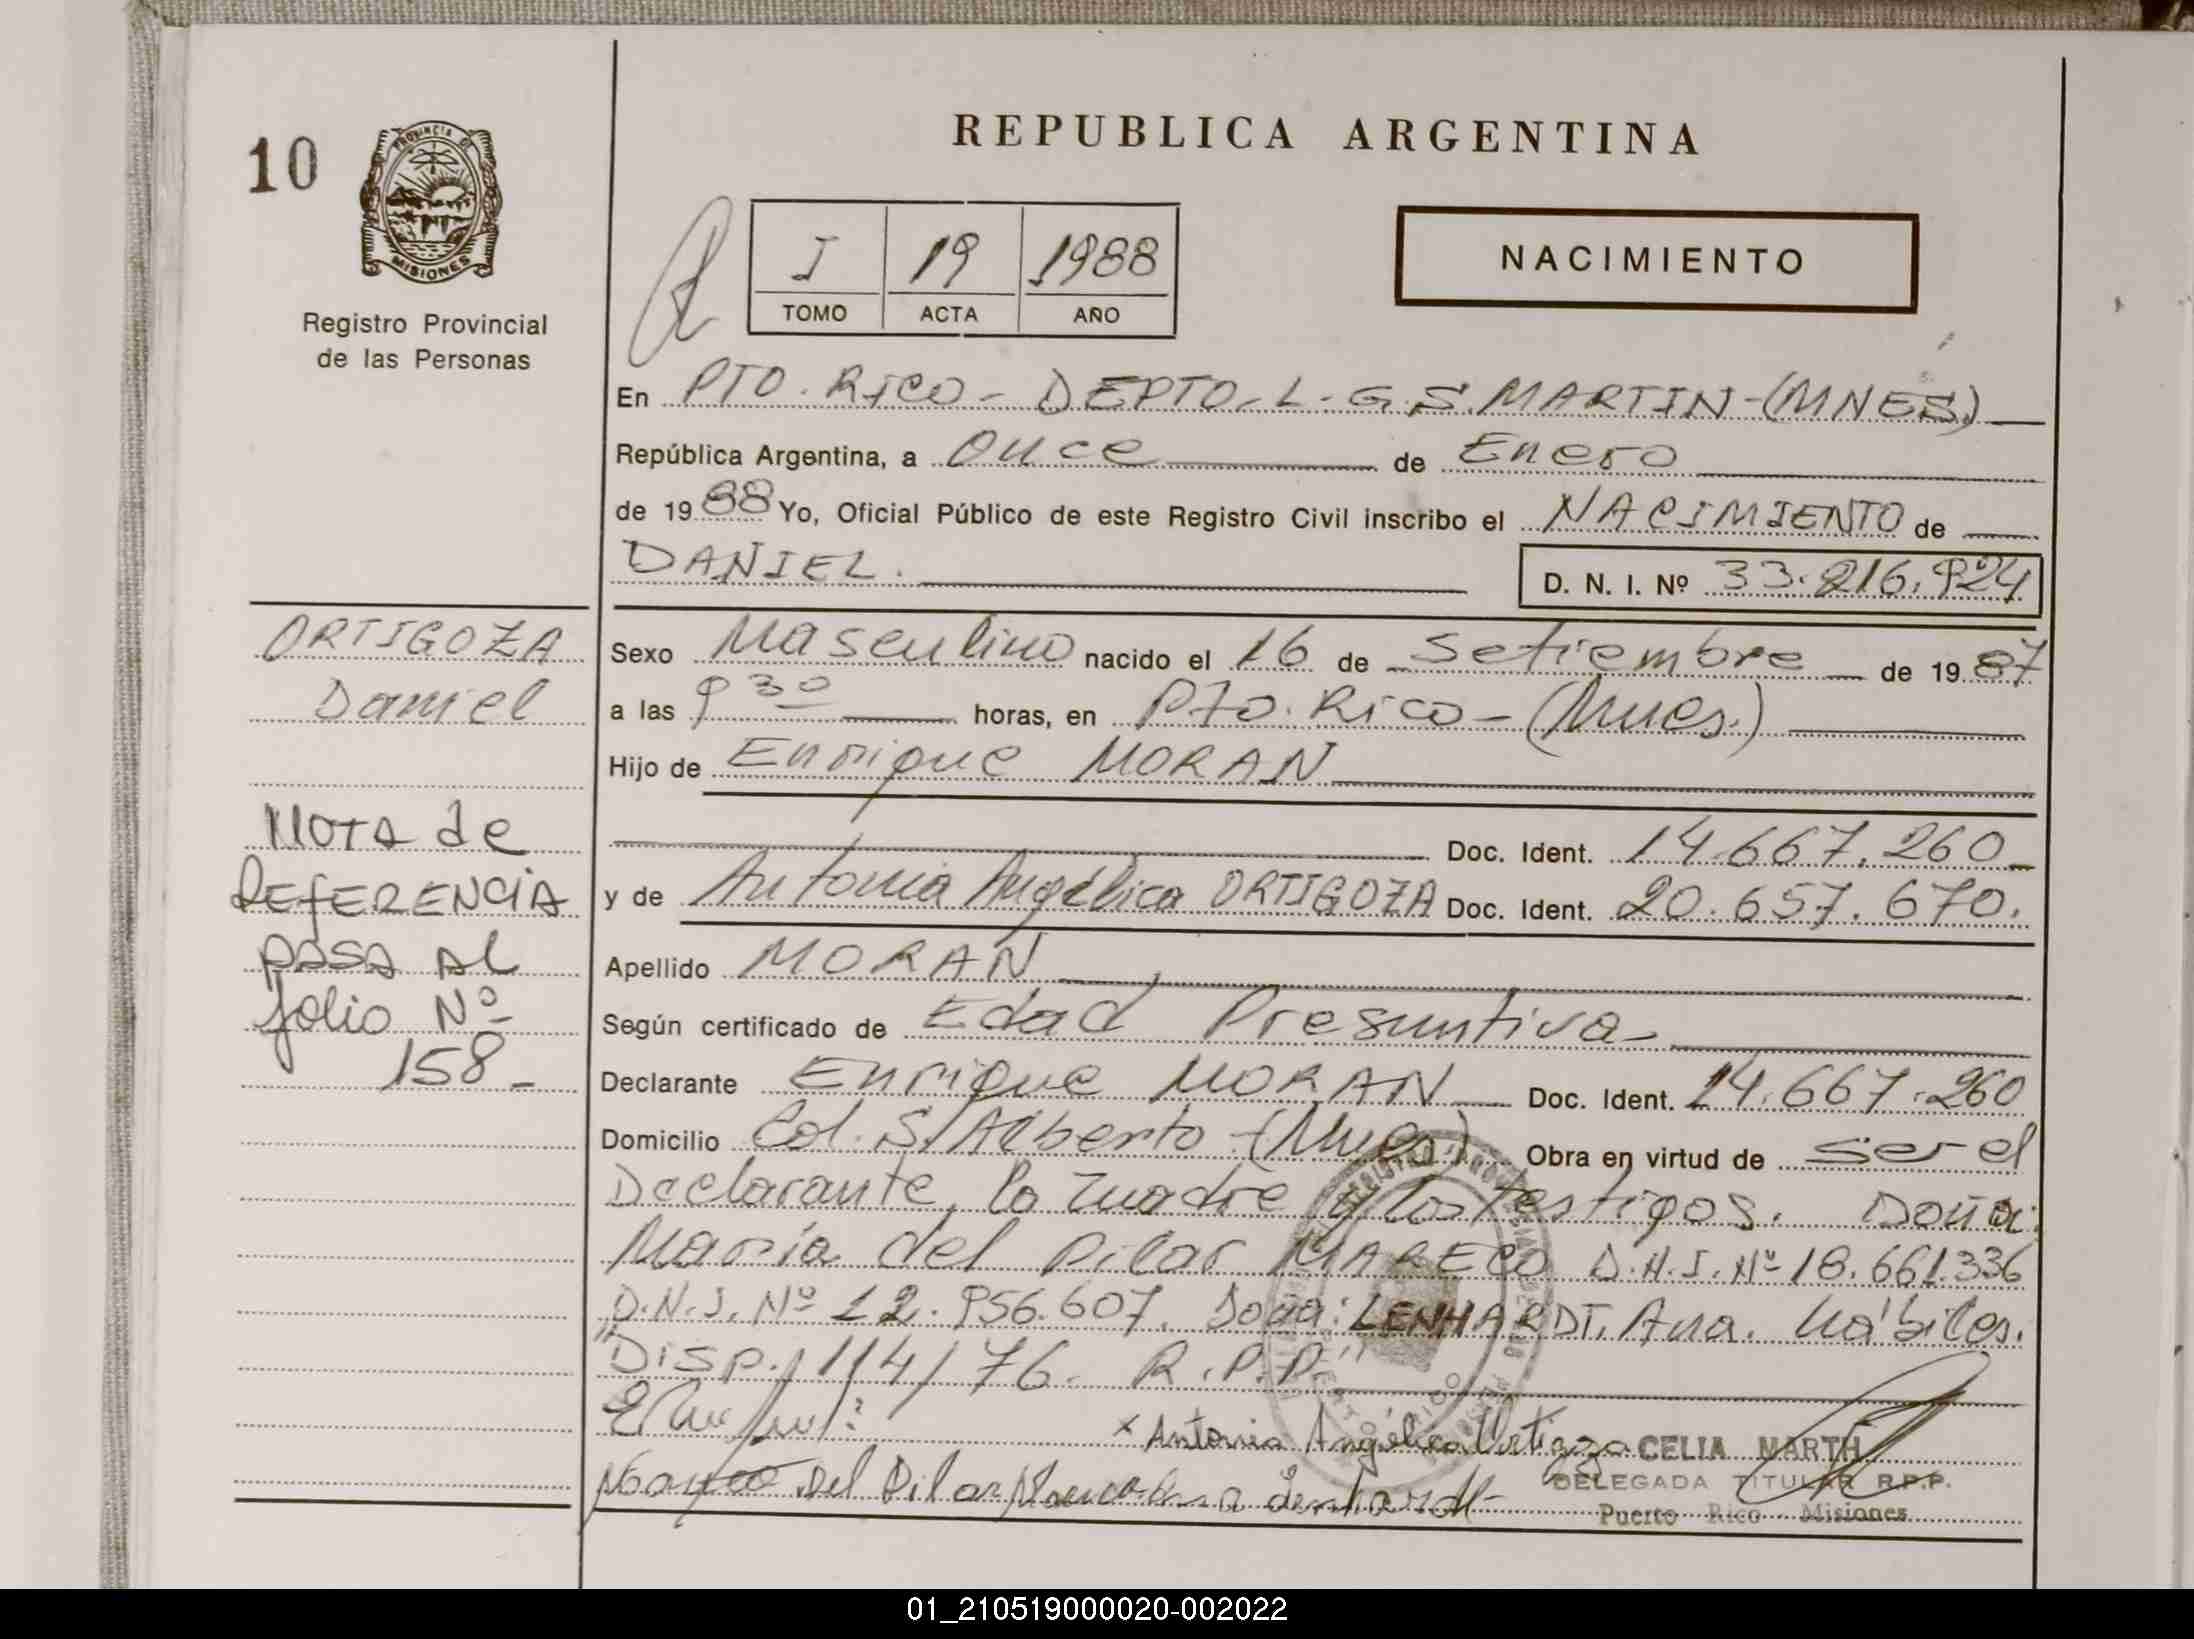 10
PROVINCIA DE
MISIONES
Registro Provincial
de las Personas
REPUBLICA ARGENTINA
I 19 1988
TOMO ACTA AÑO
NACIMIENTO
En PTO. RICO - DEPTO. L. G. S. MARTIN - (MNES.)
República Argentina, a Once de Enero
de 1988 Yo, Oficial Público de este Registro Civil inscribo el NACIMIENTO de
DANIEL. D. N. I. Nº 33.216.924
ORTIGOZA
Daniel
NOTA de
REFERENCIA
PASA AL
folio Nº
158-
Sexo Masculino nacido el 16 de Setiembre de 1987
a las 9 30 horas, en Pto. Rico - (Mnes.)
Hijo de Enrique MORAN
Doc. Ident. 14.667.260
y de Antonia Angélica ORTIGOZA Doc. Ident. 20.657.670.
Apellido MORAN
Según certificado de Edad Presuntiva
Declarante Enrique MORAN Doc. Ident. 14.667.260
Domicilio Col. S. Alberto - (Mnes) Obra en virtud de ser el
Declarante, la madre y los testigos. Doña:
María del Pilar MARECO D.N.I. Nº 18.661.336
D.N.I. Nº 12.956.607. Doña: LENHARDT, Ana. hábiles.
"Disp. 1/4/76. R.P.P."
x Antonia Angélica Ortigoza CELIA MARTH
DELEGADA TITULAR R.P.P.
del Pilar Mareco Ana Lenhardt
Puerto Rico Misiones
01_210519000020-002022